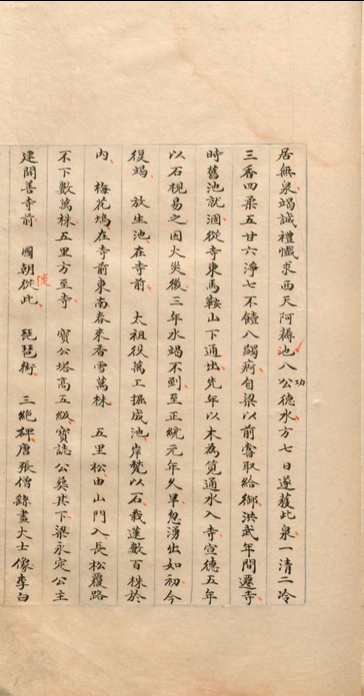 居無泉竭誠禮懺求西天阿耨池八公德水方七日遂獲此泉一清二冷
功
三香四柔五甘六淨七不饐八蠲痾自梁以前嘗取給御洪武年間遷寺
時舊池就涸從寺東馬鞍山下通出先年以木為筧通水入寺宣德五年
以石規易之因火災後三年水竭不到至正統元年久旱忽湧出如初今
復竭　放生池在寺前　太祖役萬工掘成池岸甃以石栽蓮數百株於
內　梅花塢在寺前東南春來香雪萬株　五里松由山門入長松覆路
不下數萬株五里方至寺　寶公塔高五級寶誌公葬其下梁永定公主
建開善寺前　國朝從此　琵琶街　三絕碑唐張僧繇畫大士像李白
徙